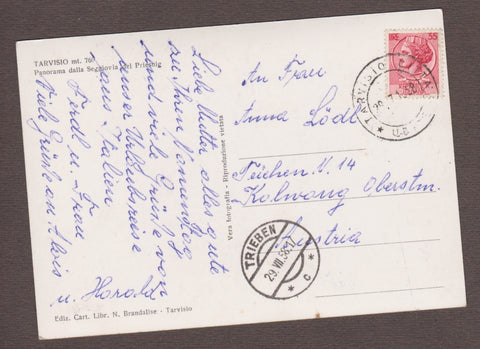 TARVISIO mt. 760
Panorama dalla Seggiovia del Priesnig
Liebe Mutter alles gute
zu Ihren Namenstag
und viele Grüße von
unser Urlaubsreise
aus Italien
Ferdl u. Frau
Viele Grüße an Alois
u. Harald
Ediz. Cart. Libr. N. Brandalise - Tarvisio
Vera fotografia - Riproduzione vietata
An Frau
Anna Lödl
Trieben N. 14
Kalwang Oberstm.
Austria
TARVISIO
TRIEBEN
29.VII.58
* c *